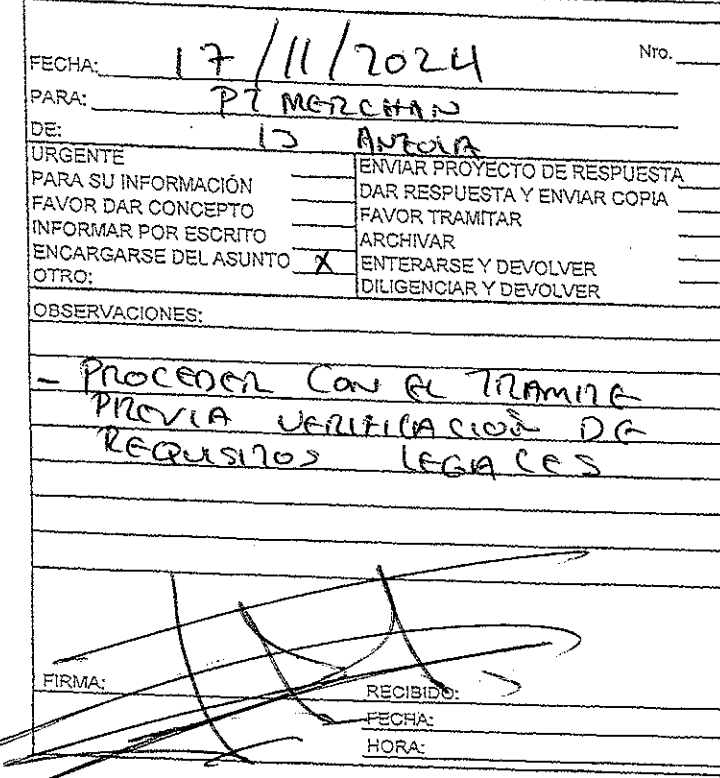 Nro.
FECHA: 17/11/2024
PARA: PT MERCHAN
DE: ANZOLA
URGENTE
PARA SU INFORMACIÓN
FAVOR DAR CONCEPTO
INFORMAR POR ESCRITO
ENCARGARSE DEL ASUNTO X
OTRO:
ENVIAR PROYECTO DE RESPUESTA
DAR RESPUESTA Y ENVIAR COPIA
FAVOR TRAMITAR
ARCHIVAR
ENTERARSE Y DEVOLVER
DILIGENCIAR Y DEVOLVER
OBSERVACIONES:
- PROCEDER CON EL TRAMITE
PREVIA VERIFICACION DE
REQUISITOS LEGALES
FIRMA:
RECIBIDO:
FECHA:
HORA: